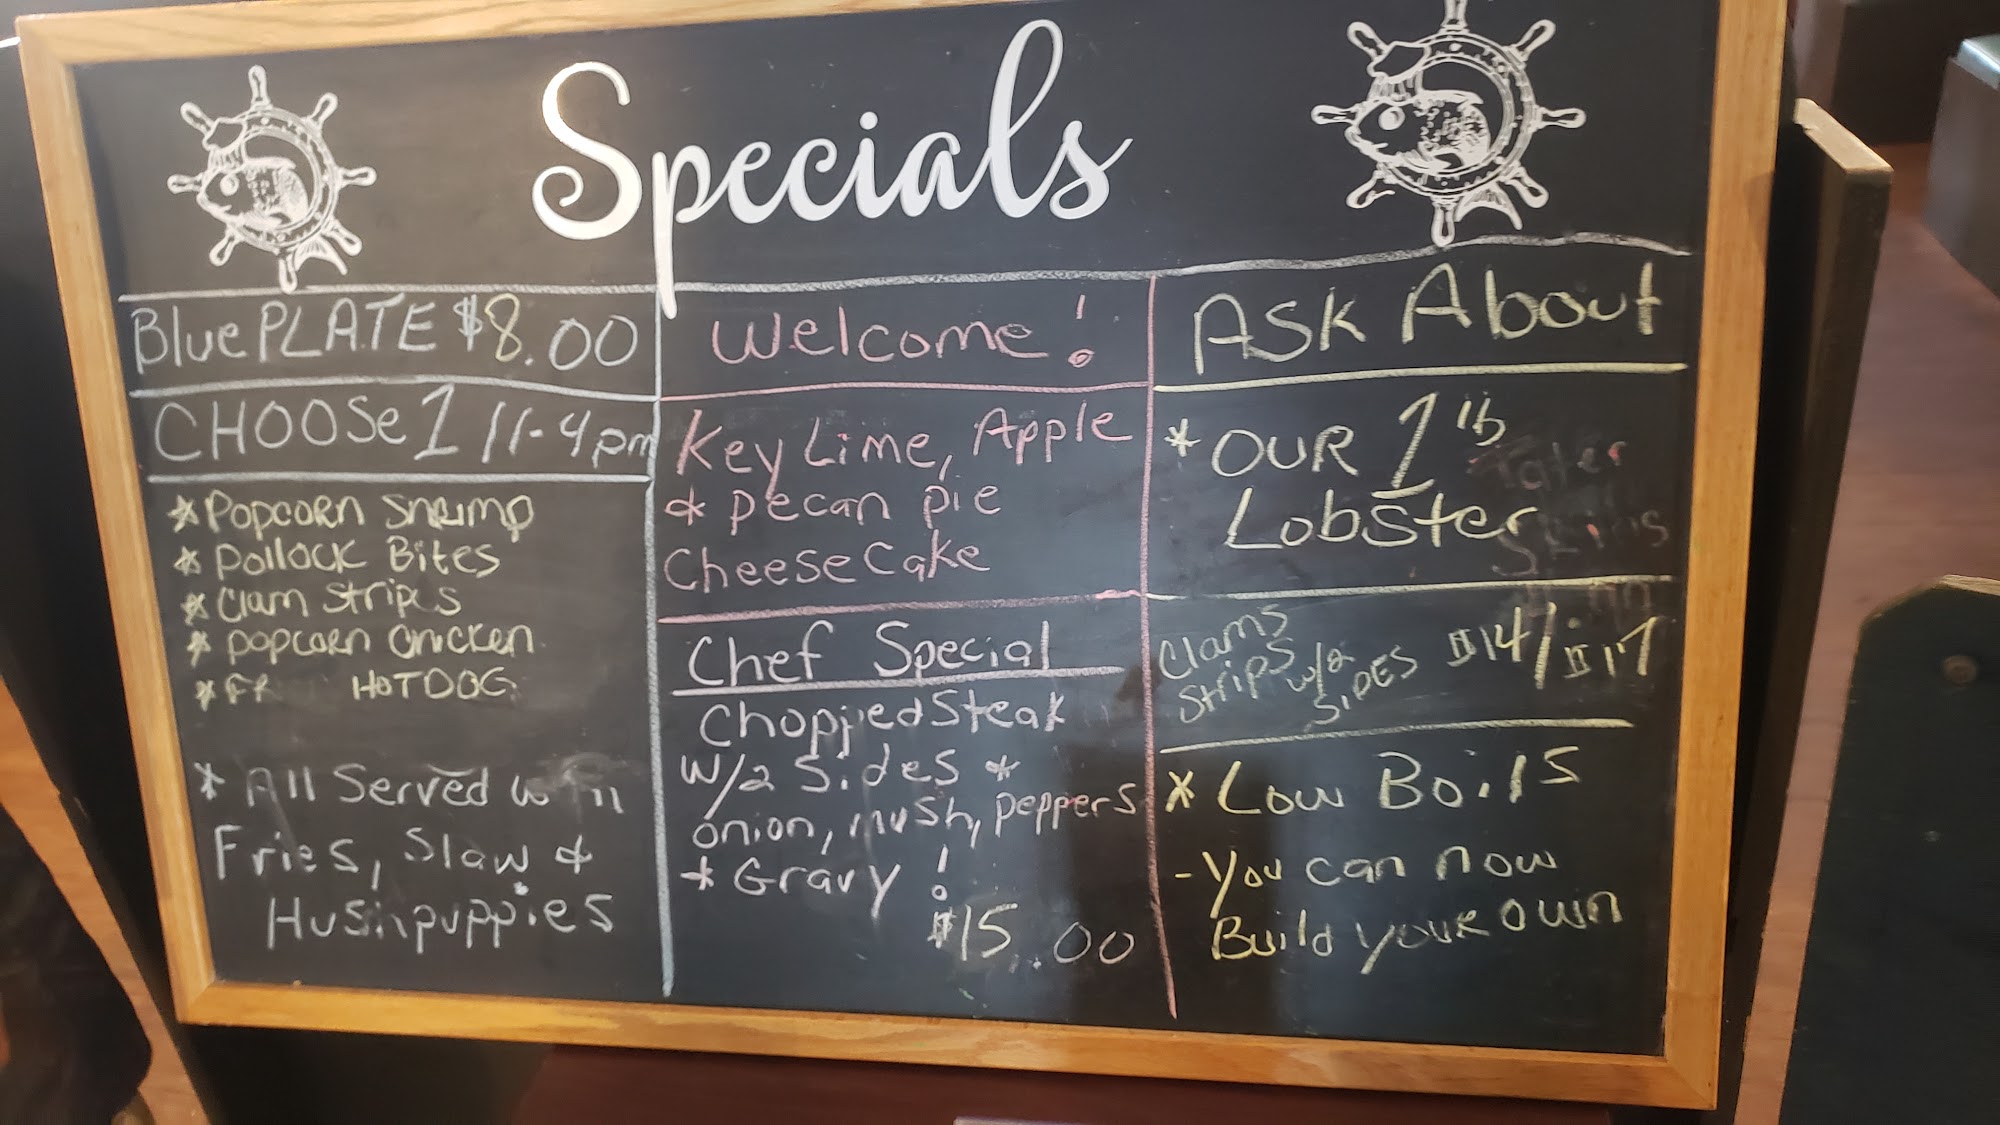 Specials
Blue PLATE $8.00
CHOOSe 1 11-4pm
* Popcorn Shrimp
* Pollock Bites
* Clam Strips
* Popcorn Chicken
* FR HOT DOG
* All Served with
Fries, Slaw &
Hushpuppies
Welcome!
Key Lime, Apple
& Pecan pie
Cheese Cake
Chef Special
Chopped Steak
W/2 Sides &
onion, mush, peppers
& Gravy!
$15.00
ASK About
* OUR 1 lb
Lobster
Tater
Skins
Clams
Strips
w/2
SIDES $14/$17
* Low Boils
- You can now
Build your own